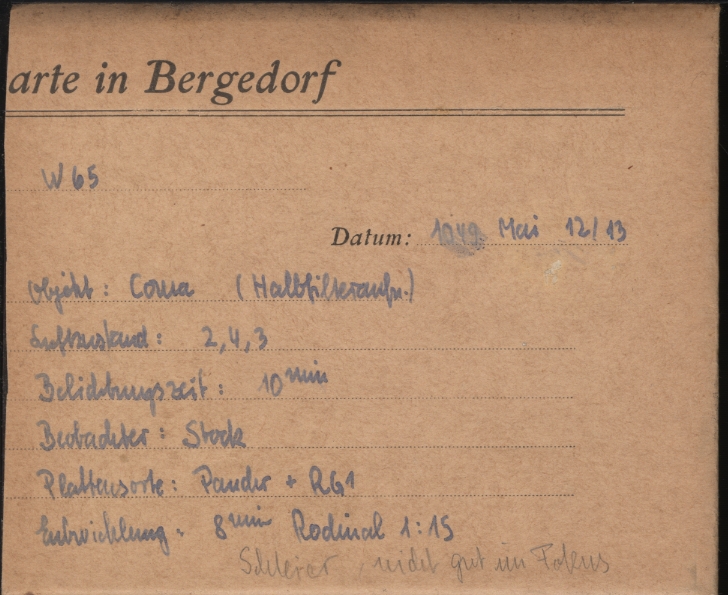 arte in Bergedorf
W 65
Datum: 1949 Mai 12/13
Objekt: Coma (Halbfilteraufn.)
Luftzustand: 2,4,3
Belichtungszeit: 10 min
Beobachter: Stock
Plattensorte: Panchr + RG1
Entwicklung: 8 min Rodinal 1:15
Schleier, nicht gut im Fokus